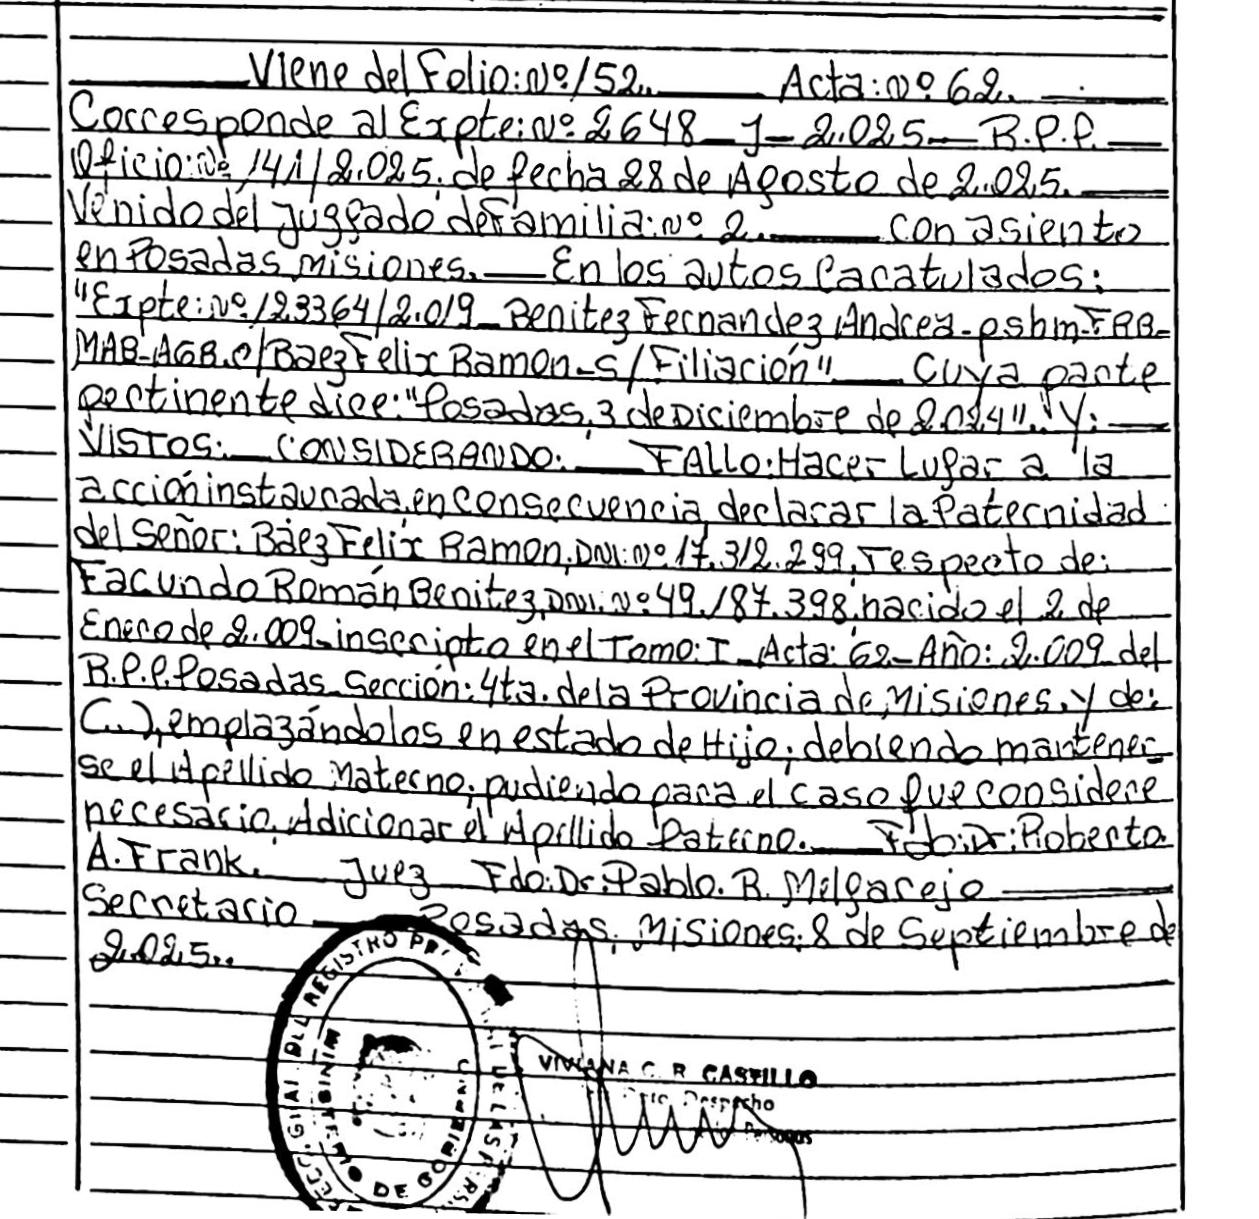 Viene del Folio: Nº 152. Acta: Nº 62.
Corresponde al Expte: Nº 2648 - J - 2.025 - R.P.P.
Oficio: Nº 141/2.025. de fecha 28 de Agosto de 2.025.
Venido del Juzgado de Familia: Nº 2. con asiento
en Posadas, Misiones. En los autos Caratulados:
"Expte: Nº 123364/2.019 - Benitez Fernandez Andrea - p.s.h.m - FRB -
MAB - AGB. c/ Baez Felix Ramon - S/Filiación" Cuya parte
pertinente dice: "Posadas, 3 de Diciembre de 2.024". "Y:
VISTOS: CONSIDERANDO: FALLO: Hacer Lugar a la
acción instaurada, en consecuencia, declarar la Paternidad
del Señor: Báez Felix Ramon, DNI: Nº 17.312.299, respecto de:
Facundo Román Benitez, DNI. Nº 49.187.398, nacido el 2 de
Enero de 2.009 - inscripto en el Tomo: I - Acta: 62 - Año: 2.009 del
R.P.P. Posadas - Sección: 4ta. de la Provincia de Misiones, y de:
(...), emplazándolos en estado de Hijo; debiendo mantener
se el Apellido Materno, pudiendo para el caso que considere
necesario, Adicionar el Apellido Paterno. Fdo: Dr: Roberto
A. Frank. Juez Fdo: Dr: Pablo. R. Melgarejo
Secretario Posadas, Misiones; 8 de Septiembre de
2.025..
REGISTRO DE LAS
MINISTERIO DE GOBIERNO
VIVIANA C. R. CASTILLO
Despacho
Personas